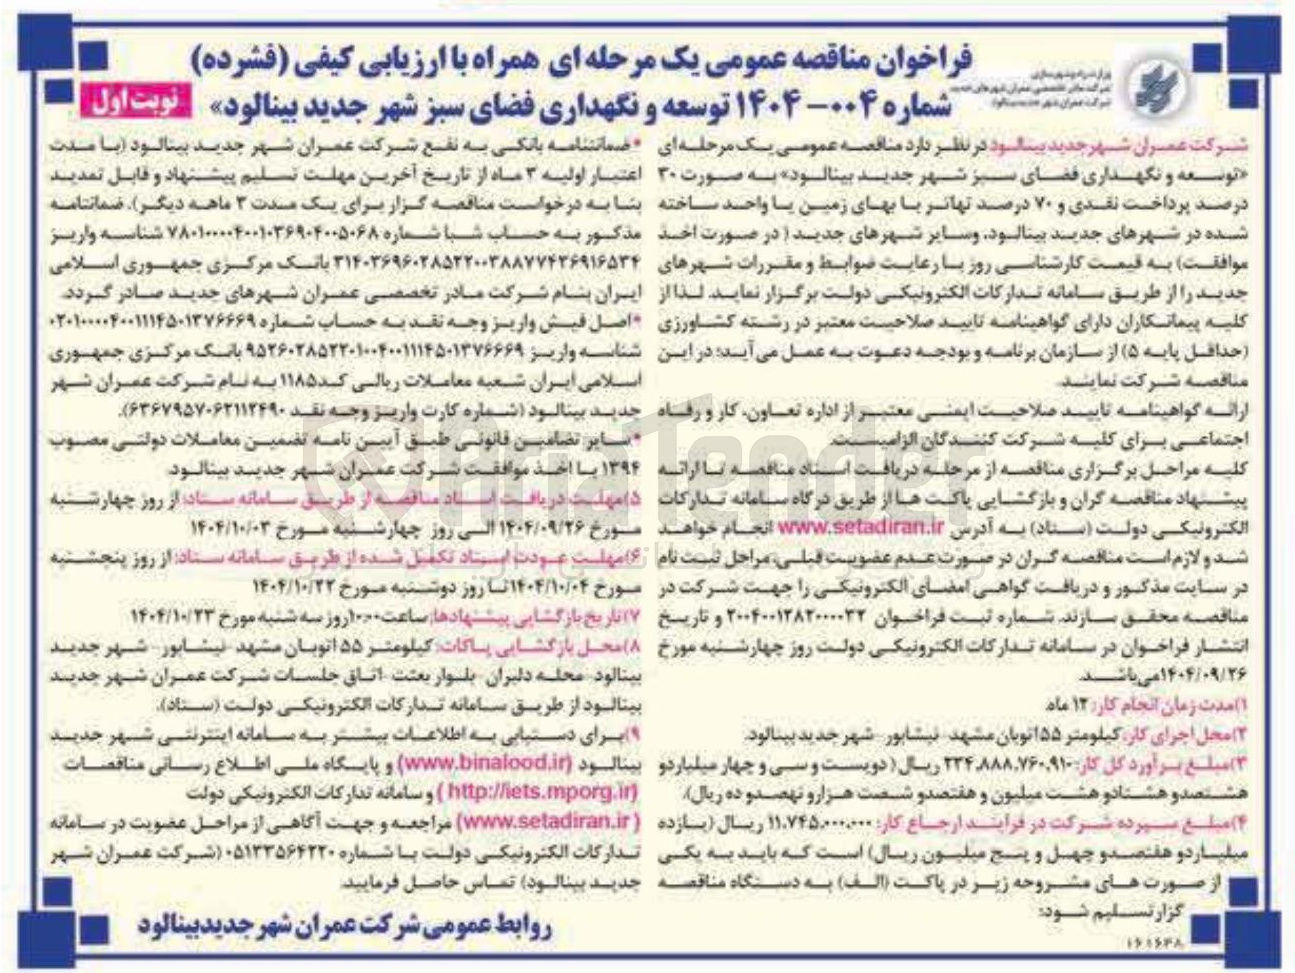 وزارت راه و شهرسازی
شرکت مادر تخصصی عمران شهرهای جدید
شرکت عمران شهر جدید بینالود
فراخوان مناقصه عمومی یک مرحله ای همراه با ارزیابی کیفی (فشرده)
شماره ۰۰۴-۱۴۰۴ توسعه و نگهداری فضای سبز شهر جدید بینالود»
نوبت اول
شرکت عمران شهر جدید بینالود در نظر دارد مناقصه عمومی یک مرحله ای
«توسعه و نگهداری فضای سبز شهر جدید بینالود» به صورت ۳۰
درصد پرداخت نقدی و ۷۰ درصد تهاتر با بهای زمین یا واحد ساخته
شده در شهرهای جدید بینالود، وسایر شهرهای جدید ( در صورت اخذ
موافقت) به قیمت کارشناسی روز با رعایت ضوابط و مقررات شهرهای
جدید را از طریق سامانه تدارکات الکترونیکی دولت برگزار نماید. لذا از
کلیه پیمانکاران دارای گواهینامه تایید صلاحیت معتبر در رشته کشاورزی
(حداقل پایه ۵) از سازمان برنامه و بودجه دعوت به عمل می آید؛ در این
مناقصه شرکت نمایند.
ارائه گواهینامه تایید صلاحیت ایمنی معتبر از اداره تعاون، کار و رفاه
اجتماعی برای کلیه شرکت کنندگان الزامیست.
کلیه مراحل برگزاری مناقصه از مرحله دریافت اسناد مناقصه تا ارائه
پیشنهاد مناقصه گران و بازگشایی پاکت ها از طریق درگاه سامانه تدارکات
الکترونیکی دولت (ستاد) به آدرس www.setadiran.ir انجام خواهد
شد و لازم است مناقصه گران در صورت عدم عضویت قبلی، مراحل ثبت نام
در سایت مذکور و دریافت گواهی امضای الکترونیکی را جهت شرکت در
مناقصه محقق سازند. شماره ثبت فراخوان ۲۰۰۴۰۰۱۳۸۲۰۰۰۰۳۲ و تاریخ
انتشار فراخوان در سامانه تدارکات الکترونیکی دولت روز چهارشنبه مورخ
۱۴۰۴/۰۹/۲۶می باشد.
۱)مدت زمان انجام کار: ۱۲ ماه
۲)محل اجرای کار: کیلومتر ۵۵ اتوبان مشهد- نیشابور- شهر جدید بینالود.
۳)مبلغ برآورد کل کار: ۲۳۴.۸۸۸.۷۶۰.۹۱۰ ریال ( دویست و سی و چهار میلیاردو
هشتصدو هشتادو هشت میلیون و هفتصدو شصت هزارو نهصدو ده ریال).
۴)مبلغ سپرده شرکت در فرایند ارجاع کار: ۱۱.۷۴۵.۰۰۰.۰۰۰ ریال (یازده
میلیاردو هفتصدو چهل و پنج میلیون ریال) است که باید به یکی
از صورت های مشروحه زیر در پاکت (الف) به دستگاه مناقصه
گزار تسلیم شود:
*ضمانتنامه بانکی به نفع شرکت عمران شهر جدید بینالود (با مدت
اعتبار اولیه ۳ ماه از تاریخ آخرین مهلت تسلیم پیشنهاد و قابل تمدید
بنا به درخواست مناقصه گزار برای یک مدت ۳ ماهه دیگر). ضمانتنامه
مذکور به حساب شبا شماره ۷۸۰۱۰۰۰۰۴۰۰۱۰۳۶۹۰۴۰۰۵۰۶۸ شناسه واریز
۳۱۴۰۳۶۹۶۰۲۸۵۲۲۰۰۳۸۸۷۷۴۳۶۹۱۶۵۳۴ بانک مرکزی جمهوری اسلامی
ایران بنام شرکت مادر تخصصی عمران شهرهای جدید صادر گردد.
*اصل فیش واریز وجه نقد به حساب شماره ۰۲۰۱۰۰۰۰۴۰۰۱۱۱۴۵۰۱۳۷۶۶۶۹
شناسه واریز ۹۵۲۶۰۲۸۵۲۲۰۱۰۰۴۰۰۱۱۱۴۵۰۱۳۷۶۶۶۹ بانک مرکزی جمهوری
اسلامی ایران شعبه معاملات ریالی کد۱۱۸۵ به نام شرکت عمران شهر
جدید بینالود (شماره کارت واریز وجه نقد ۶۳۶۷۹۵۷۰۶۲۱۱۲۴۹۰).
*سایر تضامین قانونی طبق آیین نامه تضمین معاملات دولتی مصوب
۱۳۹۴ با اخذ موافقت شرکت عمران شهر جدید بینالود.
۵)مهلت دریافت اسناد مناقصه از طریق سامانه ستاد: از روز چهارشنبه
مورخ ۱۴۰۴/۰۹/۲۶ الی روز چهارشنبه مورخ ۱۴۰۴/۱۰/۰۳
۶)مهلت عودت اسناد تکمیل شده از طریق سامانه ستاد: از روز پنجشنبه
مورخ ۱۴۰۴/۱۰/۰۴ تا روز دوشنبه مورخ ۱۴۰۴/۱۰/۲۲
۷)تاریخ بازگشایی پیشنهادها: ساعت۱۰:۰۰روز سه شنبه مورخ ۱۴۰۴/۱۰/۲۳
۸)محل بازگشایی پاکات: کیلومتر ۵۵ اتوبان مشهد- نیشابور- شهر جدید
بینالود- محله دلیران- بلوار بعثت- اتاق جلسات شرکت عمران شهر جدید
بینالود از طریق سامانه تدارکات الکترونیکی دولت (ستاد).
۹)برای دستیابی به اطلاعات بیشتر به سامانه اینترنتی شهر جدید
بینالود (www.binalood.ir) و پایگاه ملی اطلاع رسانی مناقصات
(http://iets.mporg.ir ) و سامانه تدارکات الکترونیکی دولت
( www.setadiran.ir) مراجعه و جهت آگاهی از مراحل عضویت در سامانه
تدارکات الکترونیکی دولت با شماره ۰۵۱۳۳۵۶۴۲۲۰ (شرکت عمران شهر
جدید بینالود) تماس حاصل فرمایید.
روابط عمومی شرکت عمران شهر جدید بینالود
AriaTender